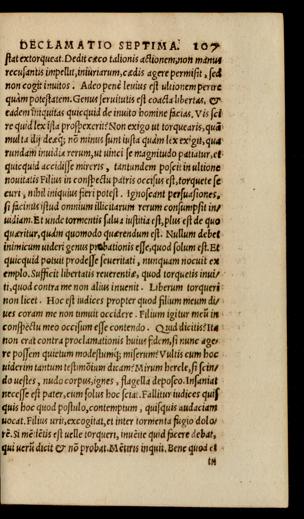 DECLAMATIO SEPTIMA. 107
stat extorqueat. Dedit cæco talionis actionem, non manus
recusantis impellit, iniuriarum, cædis agere permisit, sed
non cogit inuitos. Adeo penè leuius est ultionem perire
quàm potestatem. Genus seruitutis est coacta libertas, &
eadem iniquitas quicquid de inuito homine facias. Vis sci
re quid lex ista prospexerit? Non exigo ut torquearis, quã
multa dij deæq; nō minus sunt iusta quàm lex exigit, qua
rundam inuidia rerum, ut uinci se magnitudo patiatur, et
quicquid accidisse mireris, tantundem poscit in ultione
nouitatis Filius in conspectu patris occisus est, torquete se
curi, nihil iniquius fieri potest. Ignoscant persuasiones,
si facinus istud omnium illicitarum rerum consumpsit in-
uidiam. Et unde tormentis salua iustitia est, plus est de quo
quæritur, quàm quomodo quærendum est. Nullum debet
inimicum uideri genus probationis esse, quod solum est. Et
quicquid potuit prodesse seueritati, nunquam nocuit ex
emplo. Sufficit libertatis reuerentiæ, quod torquetis inui/
ti, quod contra me non alius inuenit. Liberum torqueri
non licet. Hoc est iudices propter quod filium meum di/
ues coram me non timuit occidere. Filium igitur meũ in
conspectu meo occisum esse contendo. Quid dicitis? Ita
non erat contra proclamationis huius fidem, si nunc age-
re possem quietum modestumq; miserum? Vultis cum hoc
uiderim tantum testimōium dicam? Mirum hercle, si scin/
do uestes, nudo corpus, ignes, flagella deposco. Insaniat
necesse est pater, cum solus hoc sciat. Fallitur iudices quis
quis hoc quod postulo, contemptum, quisquis audaciam
uocat. Filius urit, excogitat, et inter tormenta fugio dolo/
rē. Si uelle torqueri, inuēite quid facere debat,
qui uerũ dicit & nō probat. Mētiris inquit. Bene quod et
in